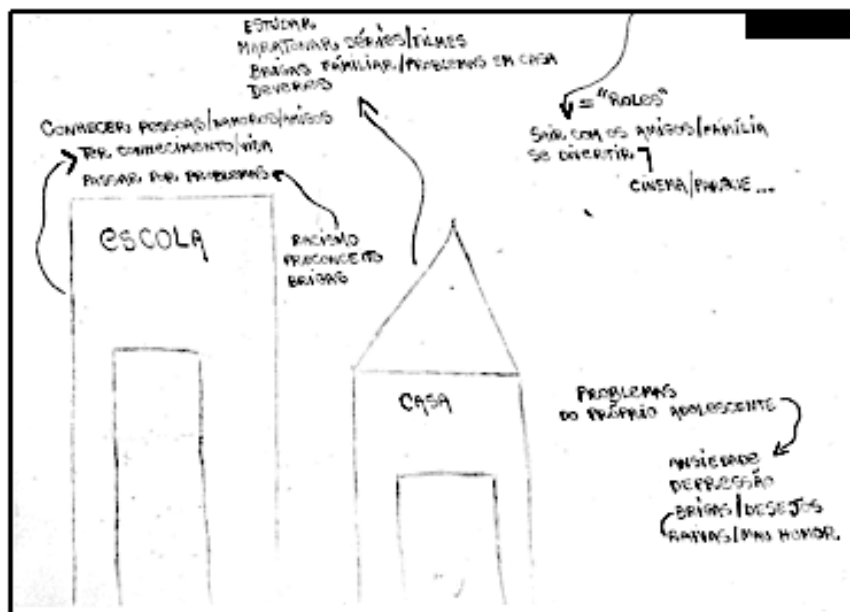 ESTUDAR
MARATONAR SÉRIES/FILMES
BRIGAS FAMILIAR/PROBLEMAS EM CASA
DEVERES
= "ROLES"
SAIR COM OS AMIGOS/FAMÍLIA
SE DIVERTIR
CINEMA/PARQUE...
CONHECER PESSOAS/NAMOROS/AMIGOS
TER CONHECIMENTO/VIDA
PASSAR POR PROBLEMAS
ESCOLA
RACISMO
PRECONCEITO
BRIGAS
CASA
PROBLEMAS
DO PRÓPRIO ADOLESCENTE
ANSIEDADE
DEPRESSÃO
BRIGAS/DESEJOS
RAIVAS/MAU HUMOR